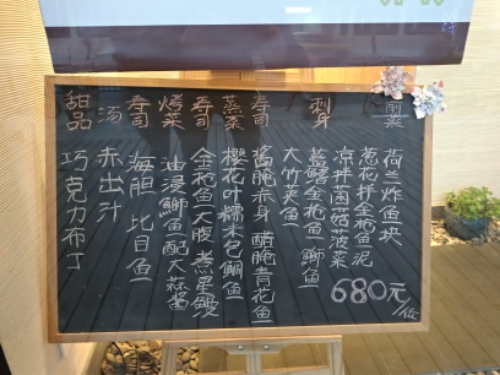 前菜
荷兰炸鱼块
葱花拌金枪鱼泥
凉拌菌菇菠菜
680元/位
刺身
蓝鳍金枪鱼 鰤鱼
大竹荚鱼
寿司
酱腌赤身 醋腌青花鱼
蒸菜
樱花叶糯米包鲷鱼
寿司
金枪鱼大腹 煮星鳗
烤菜
油浸鰤鱼配大蒜酱
寿司
海胆 比目鱼
汤
赤出汁
甜品
巧克力布丁